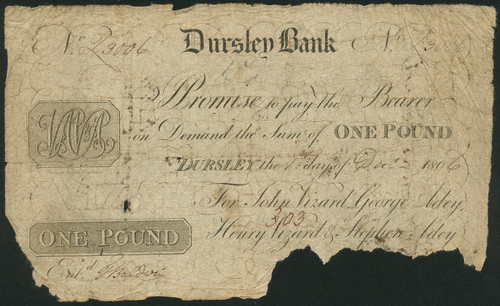 No. 23006 Dursley Bank No.
I Promise to pay the Bearer
on Demand the Sum of ONE POUND
DURSLEY the day of Dec 1806
For John Vizard, George Adey
3103
Henry Vizard & Stephen Adey
ONE POUND
Ent.d